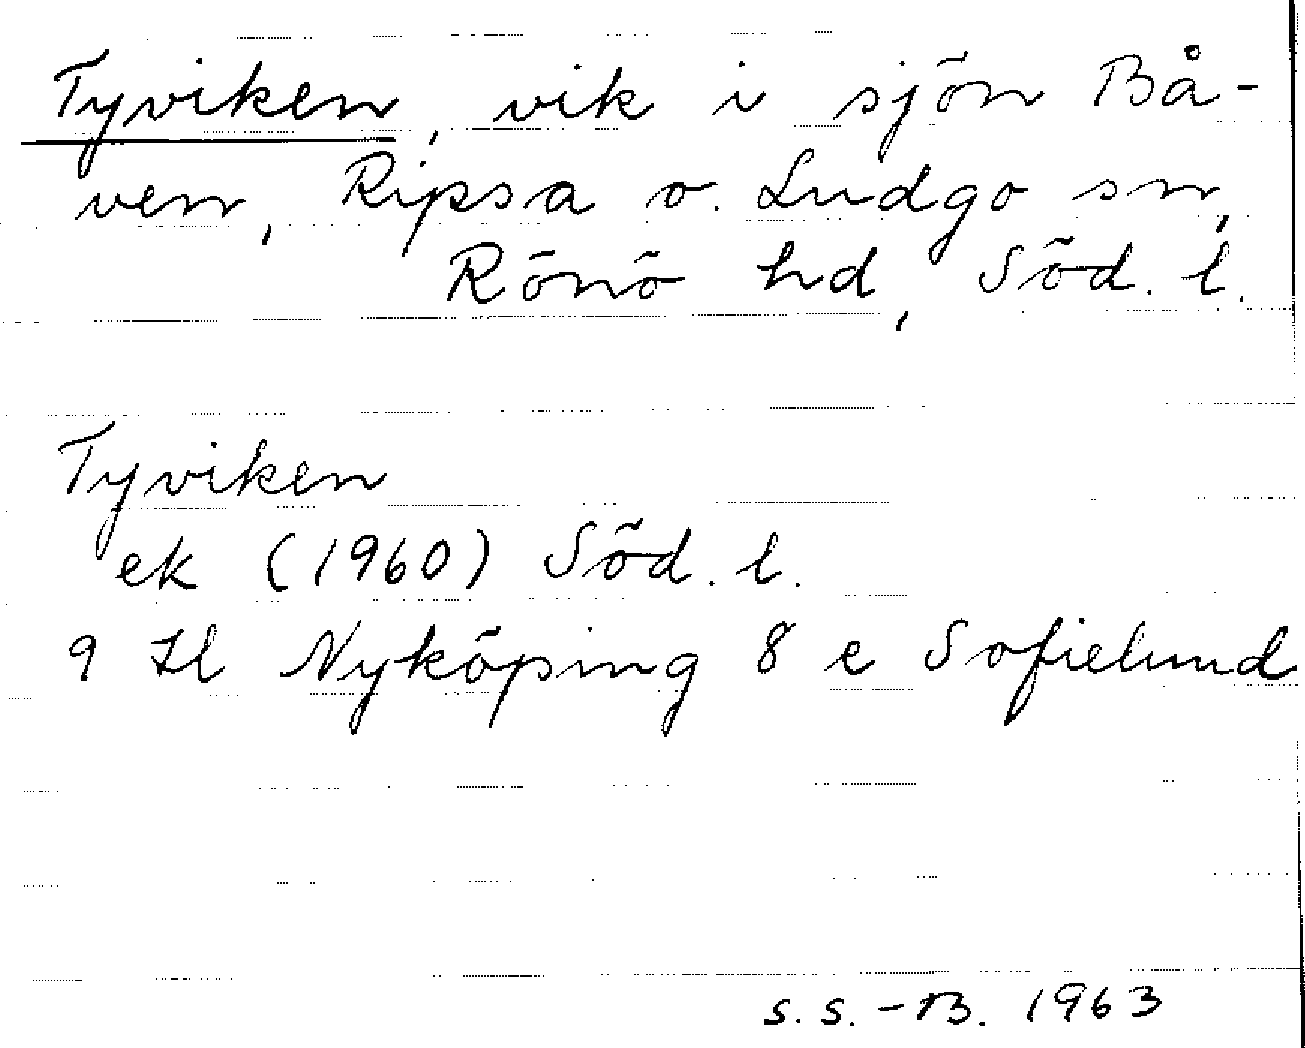 Tyviken, vik i sjön Bå-
ven, Ripsa o. Ludgo sn,
Rönö hd, Söd. l.
Tyviken
ek (1960) Söd. l.
9 Nyköping 8 e Sofielund
S.S.-B. 1963